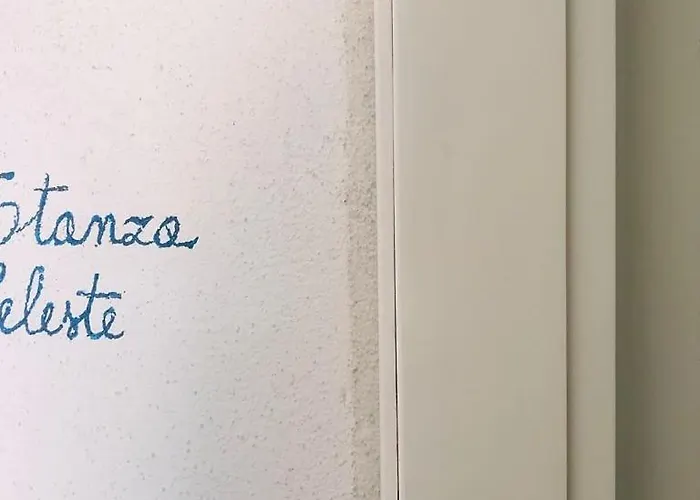 Stanza
Celeste